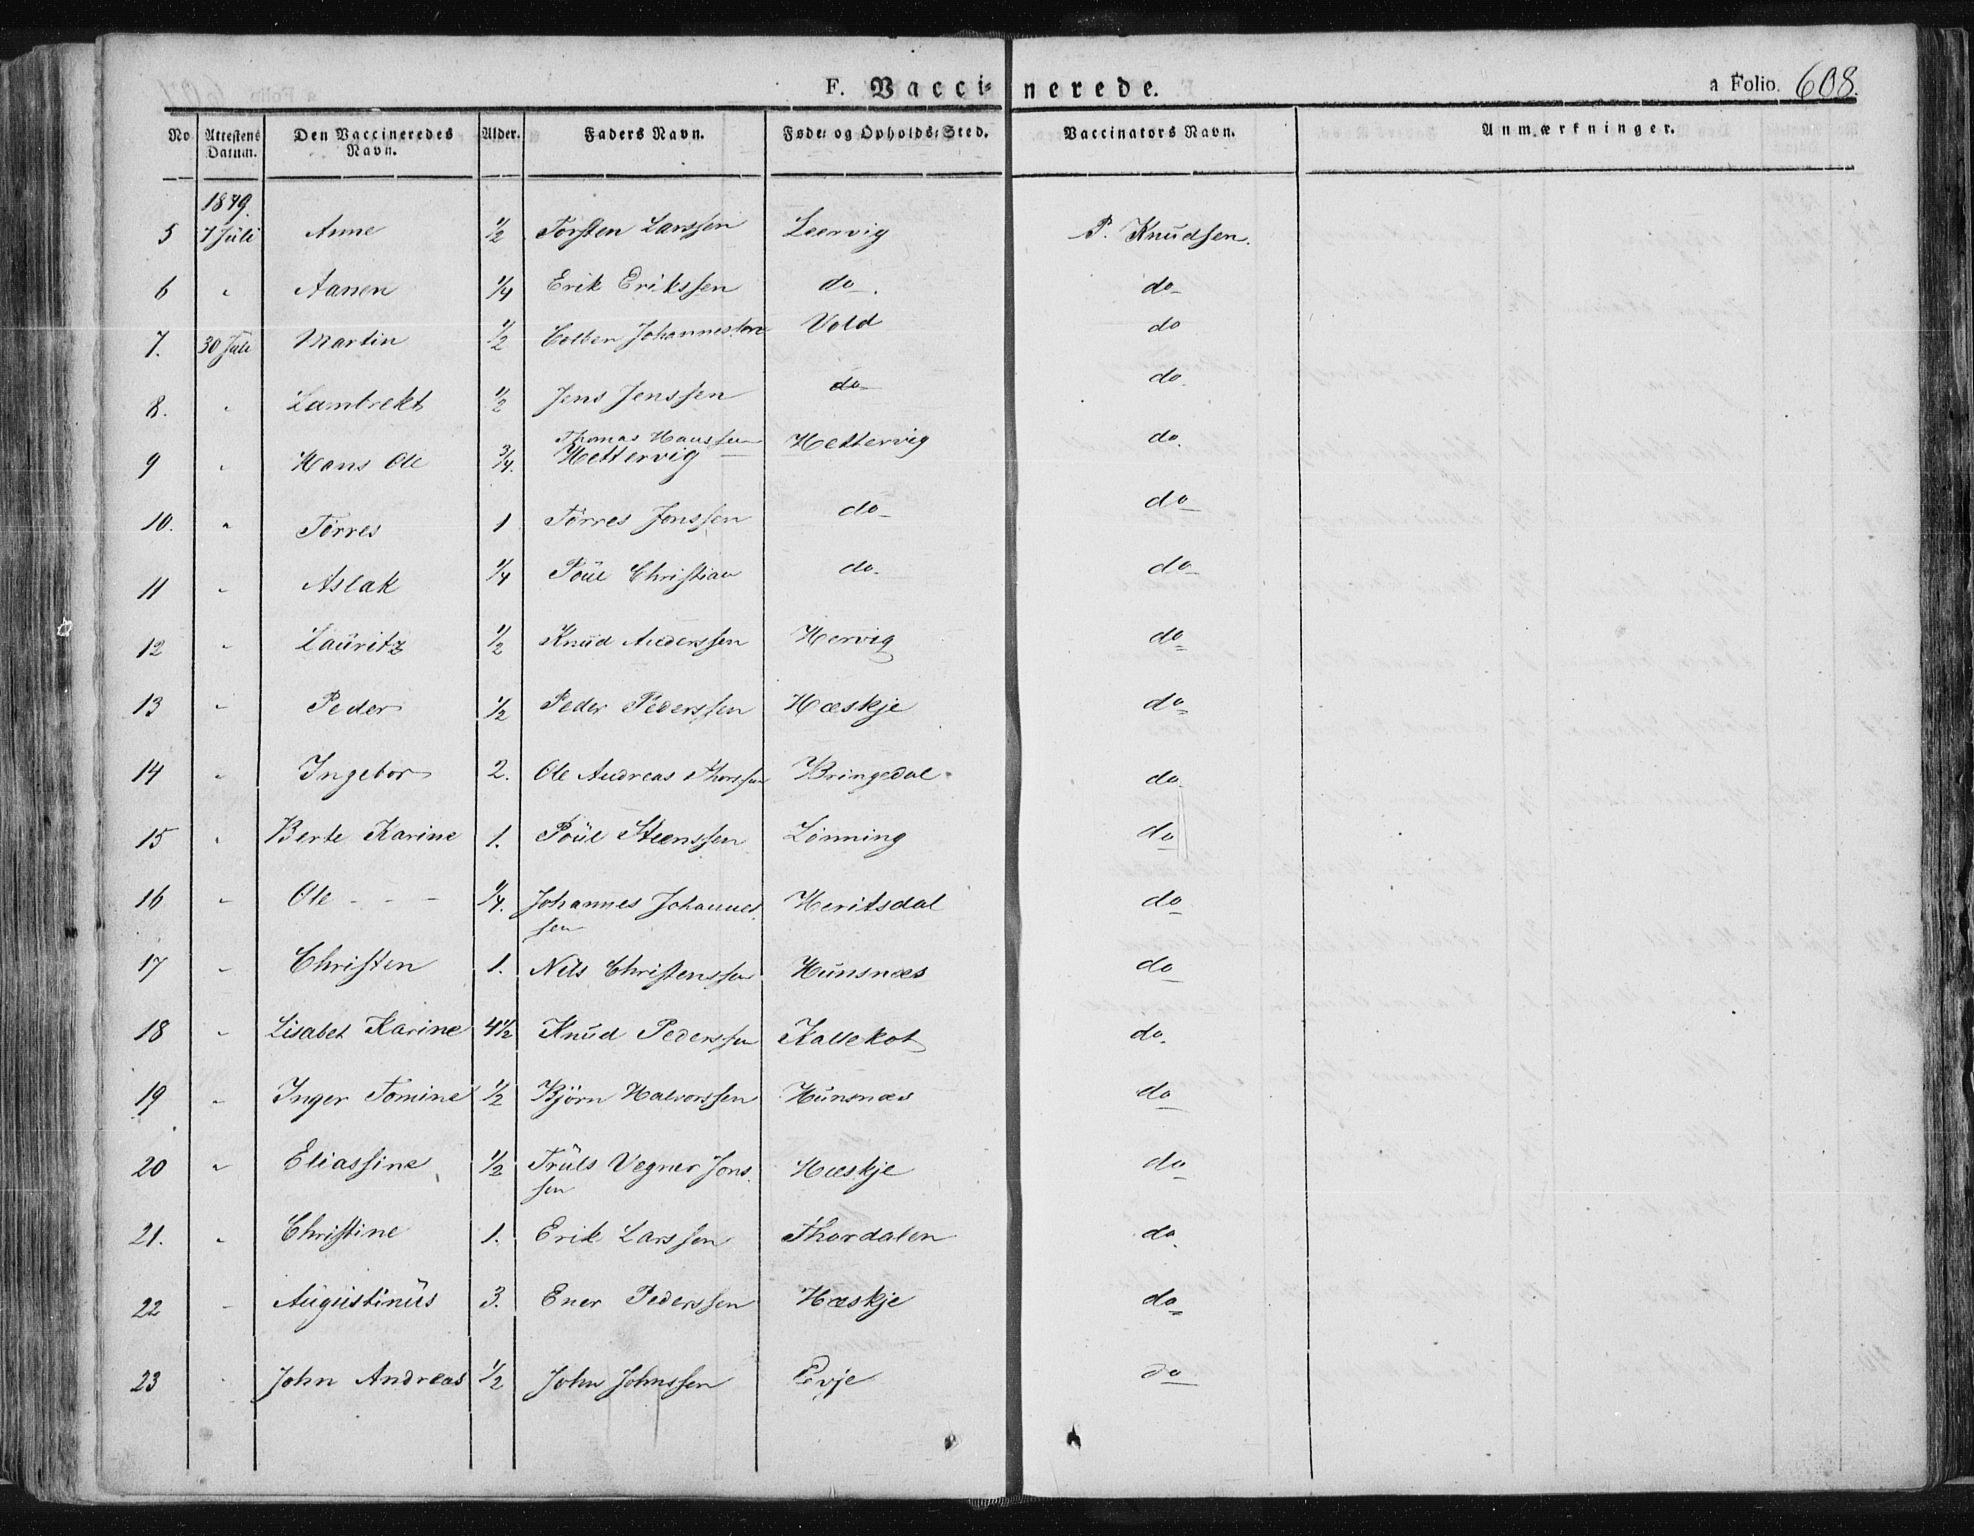 F. Vaccinerede. a Folio. 608.
No Attestens Datum. Den Vaccineredes Navn. Alder. Faders Navn. Føde- og Opholds-Sted. Vaccinators Navn. Anmærkninger.
1849.
5 7 Juli Anne 1/2 Torsten Larssen Leervig P. Knudsen.
6 " Aanen 1/4 Erik Erikssen do. do
7. 30 Juli Martin 1/2 Johannes Vold do
8. " Lambrekt 1/2 Jens Jenssen do do.
9 " Hans Ole 3/4. Thomas Hanssen Hettervig Hettervig do.
10. " Törres 1 Törres Jonssen do do
11 " Aslak 1/4 Poül Christian do. do
12 " Lauritz 1/2 Knud Anderssen Hervig do
13 " Peder 1/2 Peder Pederssen Hæskje do
14 " Ingebor 2. Ole Andreas Thorssen Bringedal do.
15 " Berte Karine 1. Poül Steenssen Lønning do
16 " Ole - - - 1/4. Johannes Johannes
sen Heritsdal do
17 " Christen 1. Nils Christenssen Hunsnæs do
18 " Lisabet Karine 4 1/2 Knud Pederssen Kallekot do.
19 " Inger Tomine 1/2 Björn Halvorssen Hunsnæs do
20 " Eliassine 1/2 Truls Vegner Jons
sen Hæskje do
21. " Christine 1. Erik Larssen Thordalen do.
22 " Augustinus 3. Ener Pederssen Hæskje do
23 " John Andreas 1/2 John Johnssen do